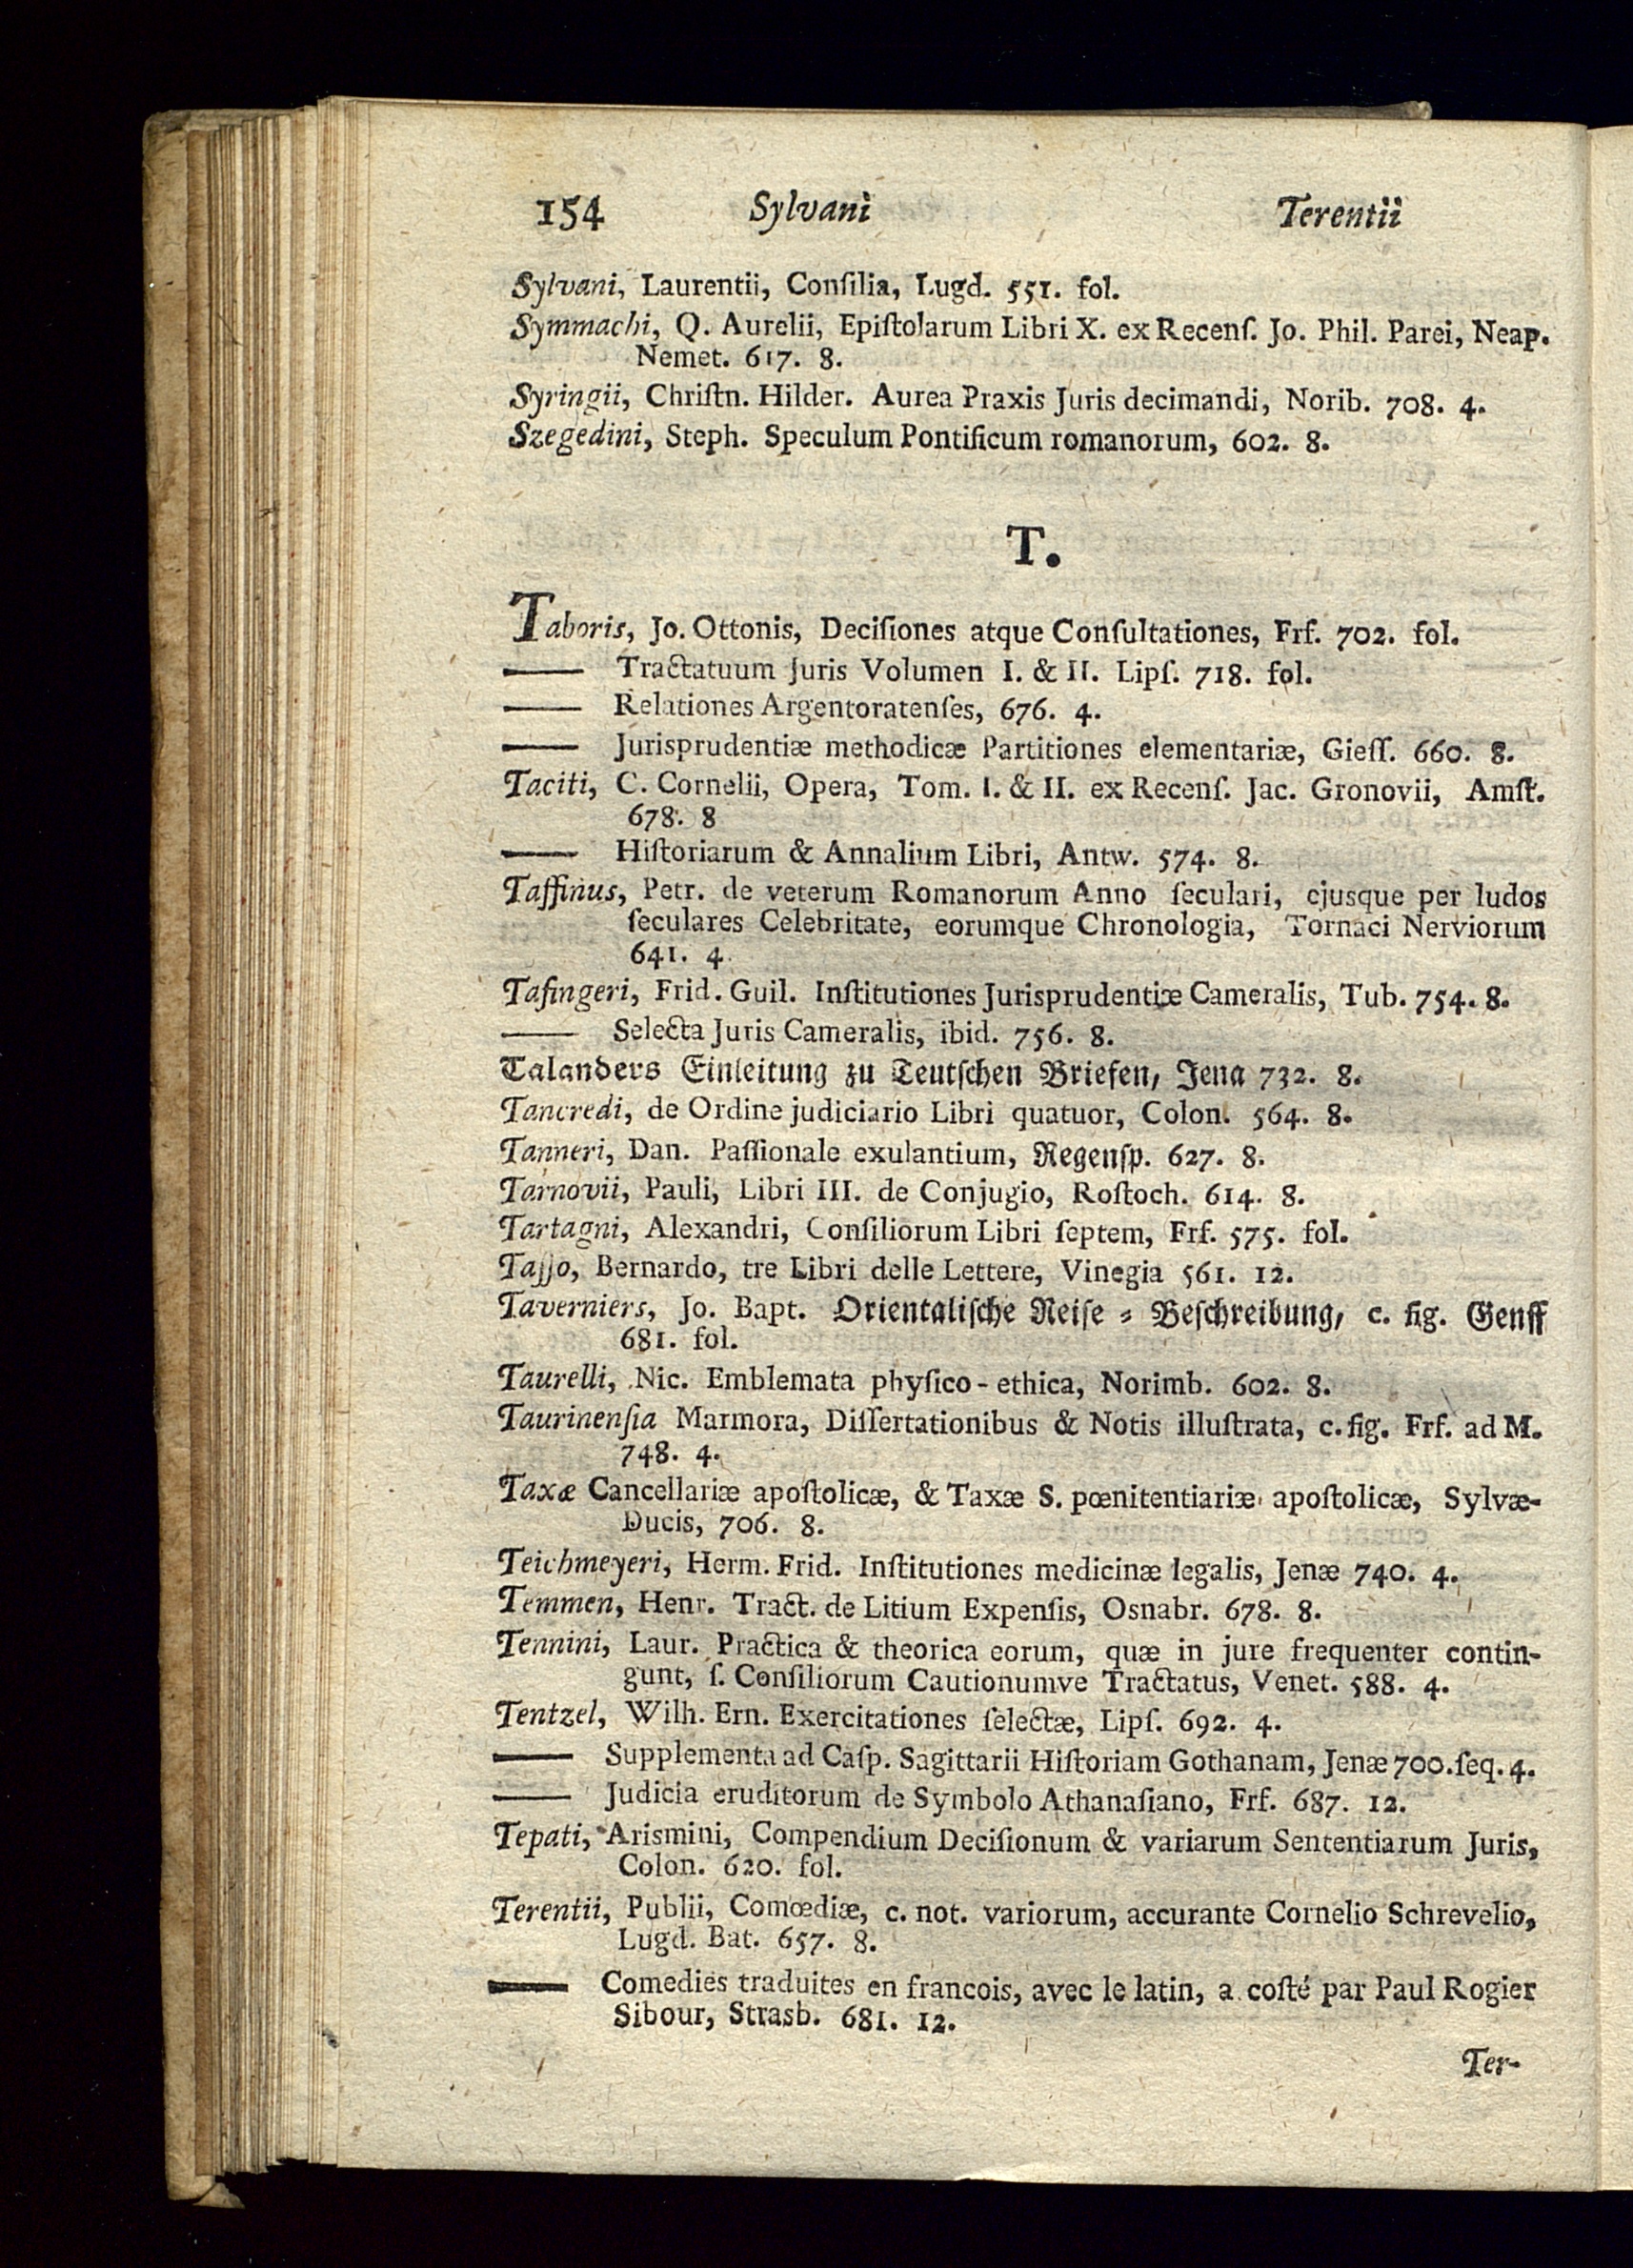 154 Sylvani Terentii
Sylvani, Laurentii, Conſilia, Lugd. 551. fol.
Symmachi, Q. Aurelii, Epiſtolarum Libri X. ex Recenſ. Jo. Phil. Parei, Neap.
Nemet. 617. 8.
Syringii, Chriſtn. Hilder. Aurea Praxis Juris decimandi, Norib. 708. 4.
Szegedini, Steph. Speculum Pontificum romanorum, 602. 8.
T.
Taboris, Jo. Ottonis, Deciſiones atque Conſultationes, Frf. 702. fol.
—— Tractatuum Juris Volumen I. & II. Lipſ. 718. fol.
—— Relationes Argentoratenſes, 676. 4.
—— Jurisprudentiæ methodicæ Partitiones elementariæ, Gieſſ. 660. 8.
Taciti, C. Cornelii, Opera, Tom. I. & II. ex Recenſ. Jac. Gronovii, Amſt.
678. 8
—— Hiſtoriarum & Annalium Libri, Antw. 574. 8.
Taffinus, Petr. de veterum Romanorum Anno ſeculari, ejusque per ludos
ſeculares Celebritate, eorumque Chronologia, Tornaci Nerviorum
641. 4.
Tafingeri, Frid. Guil. Inſtitutiones Jurisprudentiæ Cameralis, Tub. 754. 8.
—— Selecta Juris Cameralis, ibid. 756. 8.
Talanders Einleitung zu Teutſchen Briefen, Jena 732. 8.
Tancredi, de Ordine judiciario Libri quatuor, Colon. 564. 8.
Tanneri, Dan. Paſſionale exulantium, Regenſp. 627. 8.
Tarnovii, Pauli, Libri III. de Conjugio, Roſtoch. 614. 8.
Tartagni, Alexandri, Conſiliorum Libri ſeptem, Frf. 575. fol.
Taſſo, Bernardo, tre Libri delle Lettere, Vinegia 561. 12.
Taverniers, Jo. Bapt. Orientaliſche Reiſe⸗Beſchreibung, c. fig. Genff
681. fol.
Taurelli, Nic. Emblemata phyſico-ethica, Norimb. 602. 8.
Taurinenſia Marmora, Diſſertationibus & Notis illuſtrata, c. fig. Frf. ad M.
748. 4.
Taxæ Cancellariæ apoſtolicæ, & Taxæ S. pœnitentiariæ apoſtolicæ, Sylvæ-
Ducis, 706. 8.
Teichmeyeri, Herm. Frid. Inſtitutiones medicinæ legalis, Jenæ 740. 4.
Temmen, Henr. Tract. de Litium Expenſis, Osnabr. 678. 8.
Tennini, Laur. Practica & theorica eorum, quæ in jure frequenter contin-
gunt, ſ. Conſiliorum Cautionumve Tractatus, Venet. 588. 4.
Tentzel, Wilh. Ern. Exercitationes ſelectæ, Lipſ. 692. 4.
—— Supplementa ad Caſp. Sagittarii Hiſtoriam Gothanam, Jenæ 700. ſeq. 4.
—— Judicia eruditorum de Symbolo Athanaſiano, Frf. 687. 12.
Tepati, Arismini, Compendium Deciſionum & variarum Sententiarum Juris,
Colon. 620. fol.
Terentii, Publii, Comœdiæ, c. not. variorum, accurante Cornelio Schrevelio,
Lugd. Bat. 657. 8.
—— Comedies traduites en francois, avec le latin, a coſté par Paul Rogier
Sibour, Strasb. 681. 12.
Ter-